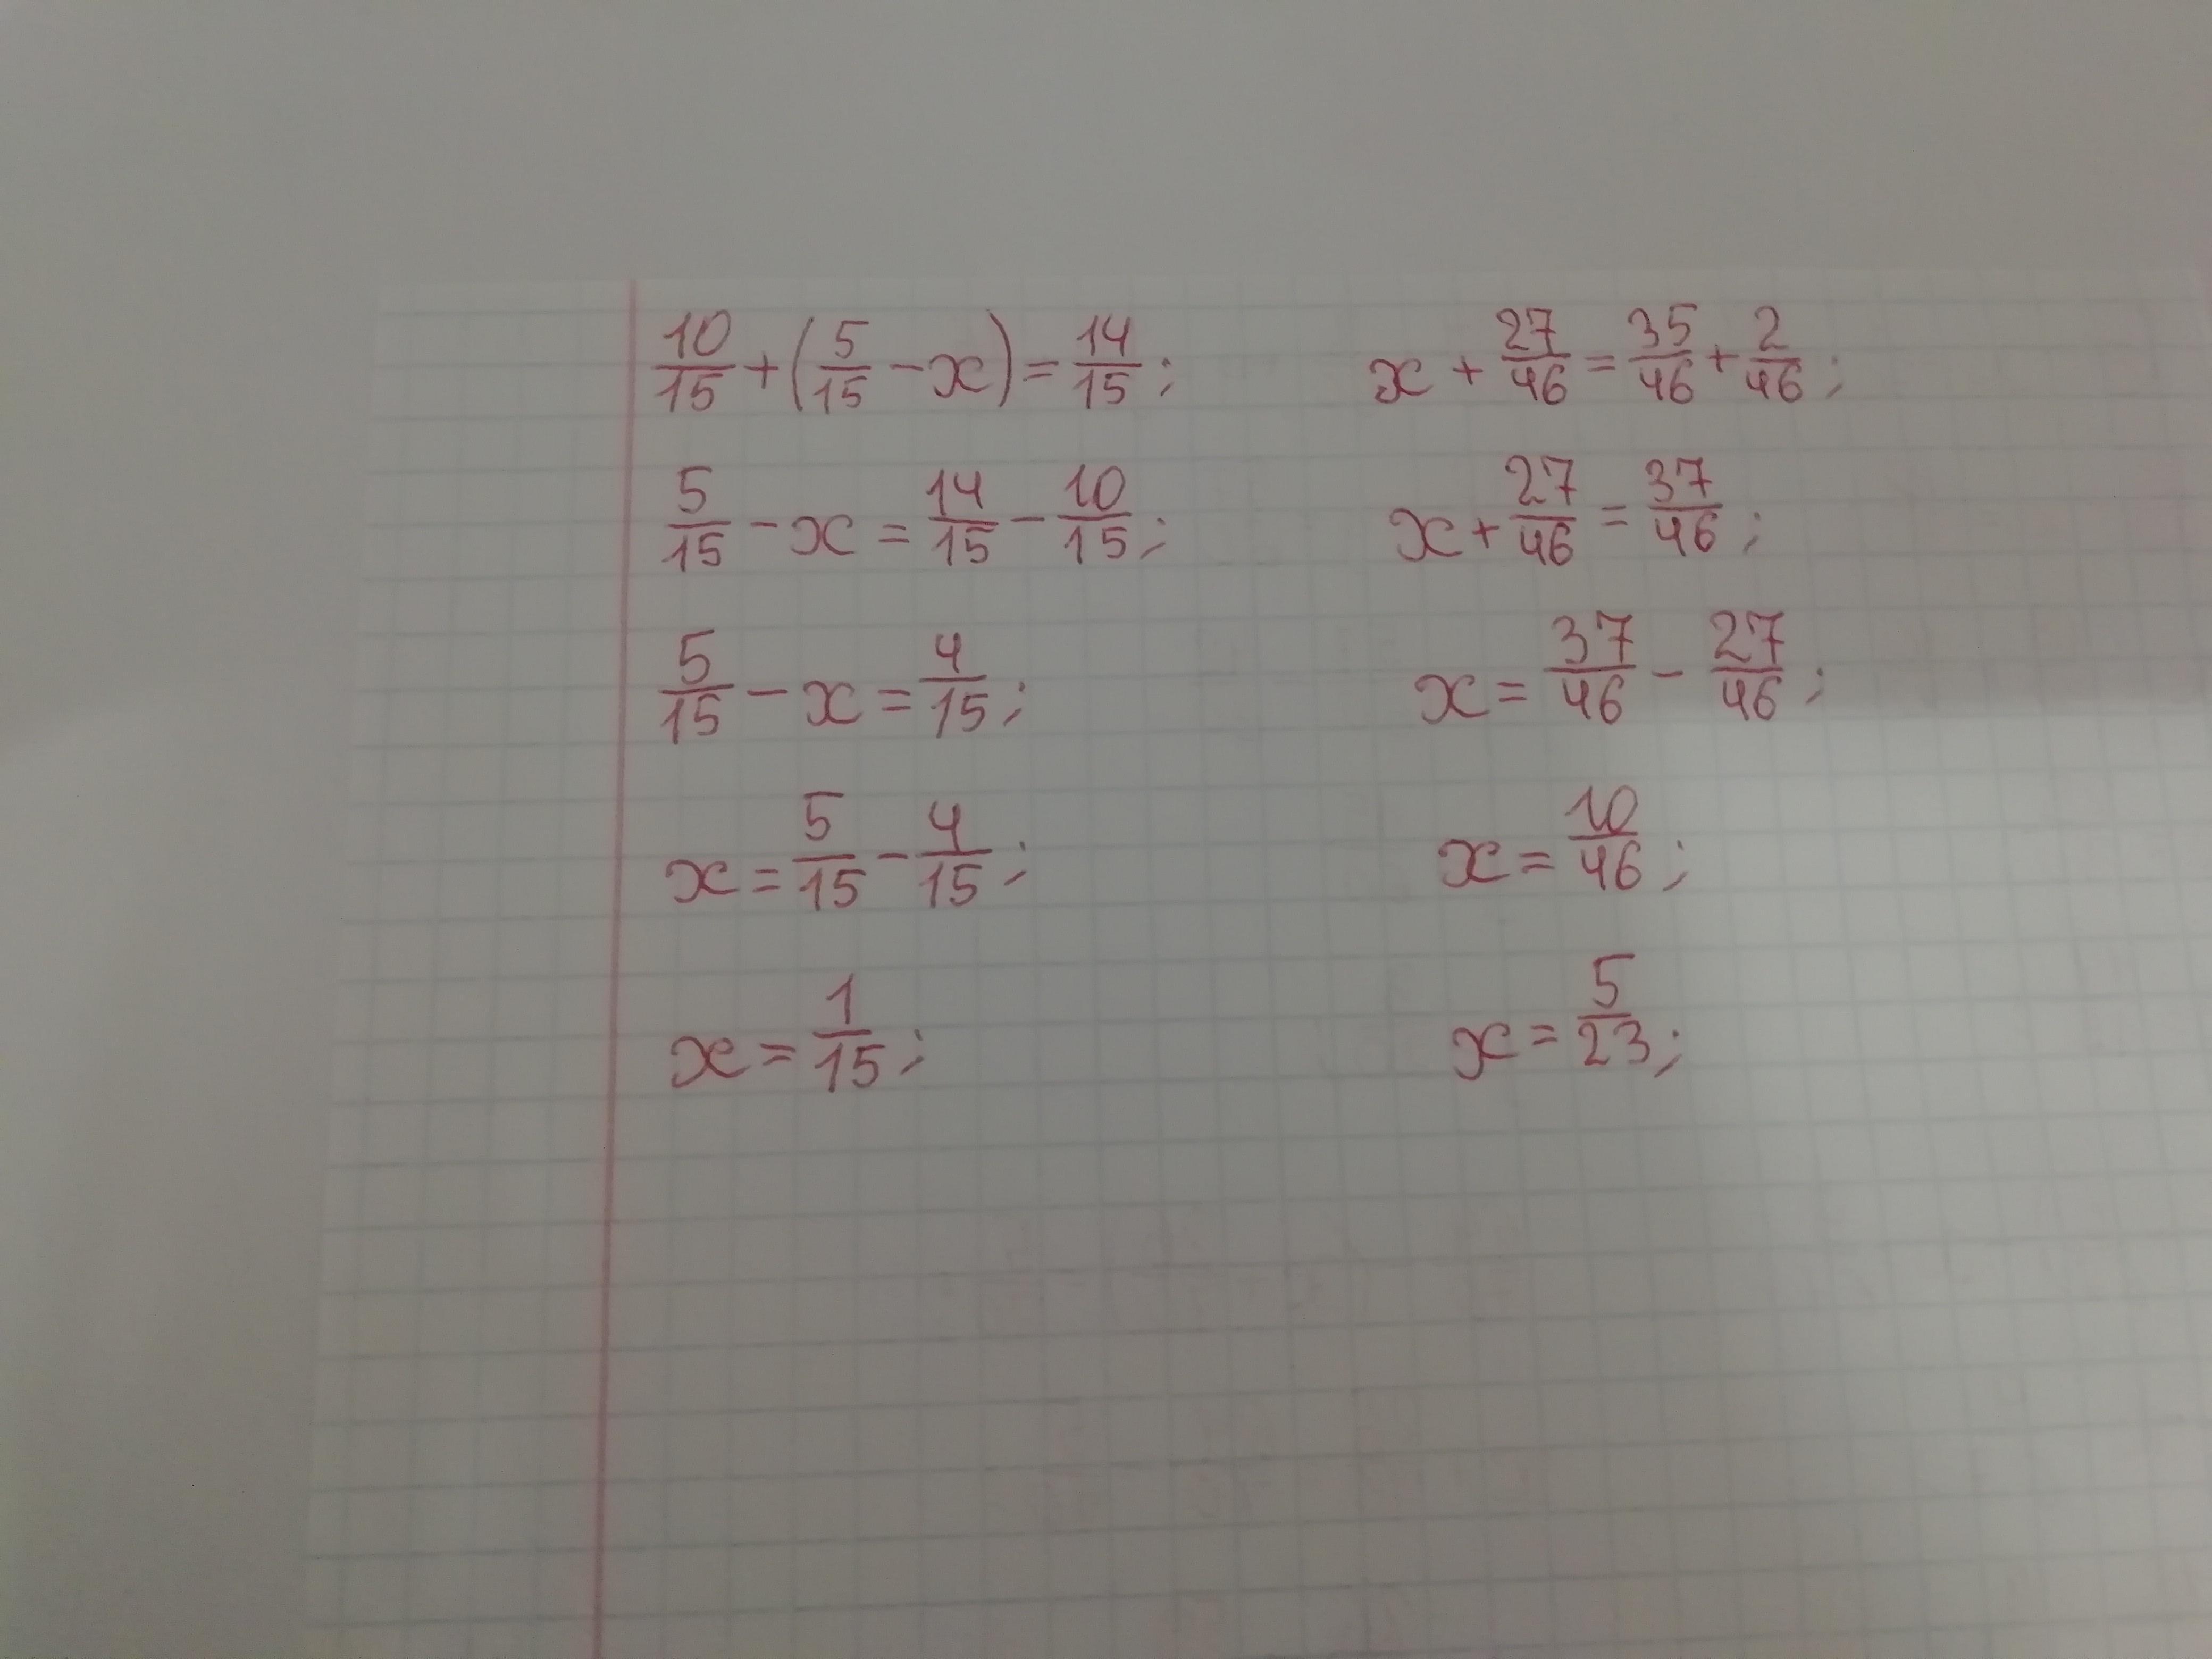 10/15 + (5/15 - x) = 14/15;
5/15 - x = 14/15 - 10/15;
5/15 - x = 4/15;
x = 5/15 - 4/15;
x = 1/15;
x + 27/46 = 35/46 + 2/46;
x + 27/46 = 37/46;
x = 37/46 - 27/46;
x = 10/46;
x = 5/23;